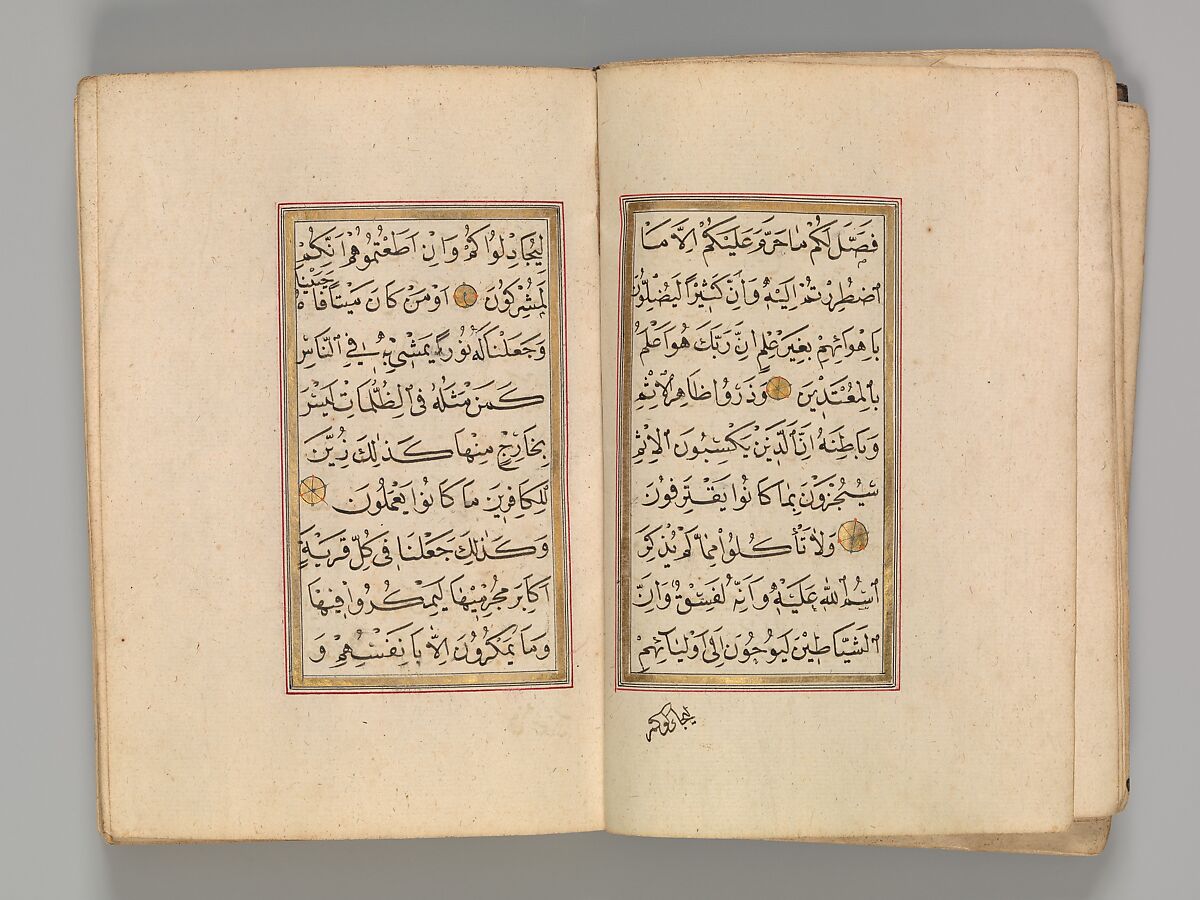 فَصَّلَ لَكُمْ مَا حَرَّمَ عَلَيْكُمْ اِلَّا مَا
اضْطُرِرْتُمْ اِلَيْهِ وَاِنَّ كَثِيرًا لَيُضِلُّونَ
بِاَهْوَائِهِمْ بِغَيْرِ عِلْمٍ اِنَّ رَبَّكَ هُوَ اَعْلَمُ
بِالْمُعْتَدِينَ وَذَرُوا ظَاهِرَ الْاِثْمِ
وَبَاطِنَهُ اِنَّ الَّذِينَ يَكْسِبُونَ الْاِثْمَ
سَيُجْزَوْنَ بِمَا كَانُوا يَقْتَرِفُونَ
وَلَا تَأْكُلُوا مِمَّا لَمْ يُذْكَرِ
اسْمُ اللهِ عَلَيْهِ وَاِنَّهُ لَفِسْقٌ وَاِنَّ
الشَّيَاطِينَ لَيُوحُونَ اِلَى اَوْلِيَائِهِمْ
ليجادلوكم
لِيُجَادِلُوكُمْ وَاِنْ اَطَعْتُمُوهُمْ اِنَّكُمْ
لَمُشْرِكُونَ اَوَمَنْ كَانَ مَيْتًا فَاَحْيَيْنَاهُ
وَجَعَلْنَا لَهُ نُورًا يَمْشِي بِهِ فِي النَّاسِ
كَمَنْ مَثَلُهُ فِي الظُّلُمَاتِ لَيْسَ
بِخَارِجٍ مِنْهَا كَذٰلِكَ زُيِّنَ
لِلْكَافِرِينَ مَا كَانُوا يَعْمَلُونَ
وَكَذٰلِكَ جَعَلْنَا فِي كُلِّ قَرْيَةٍ
اَكَابِرَ مُجْرِمِيهَا لِيَمْكُرُوا فِيهَا
وَمَا يَمْكُرُونَ اِلَّا بِاَنْفُسِهِمْ وَ